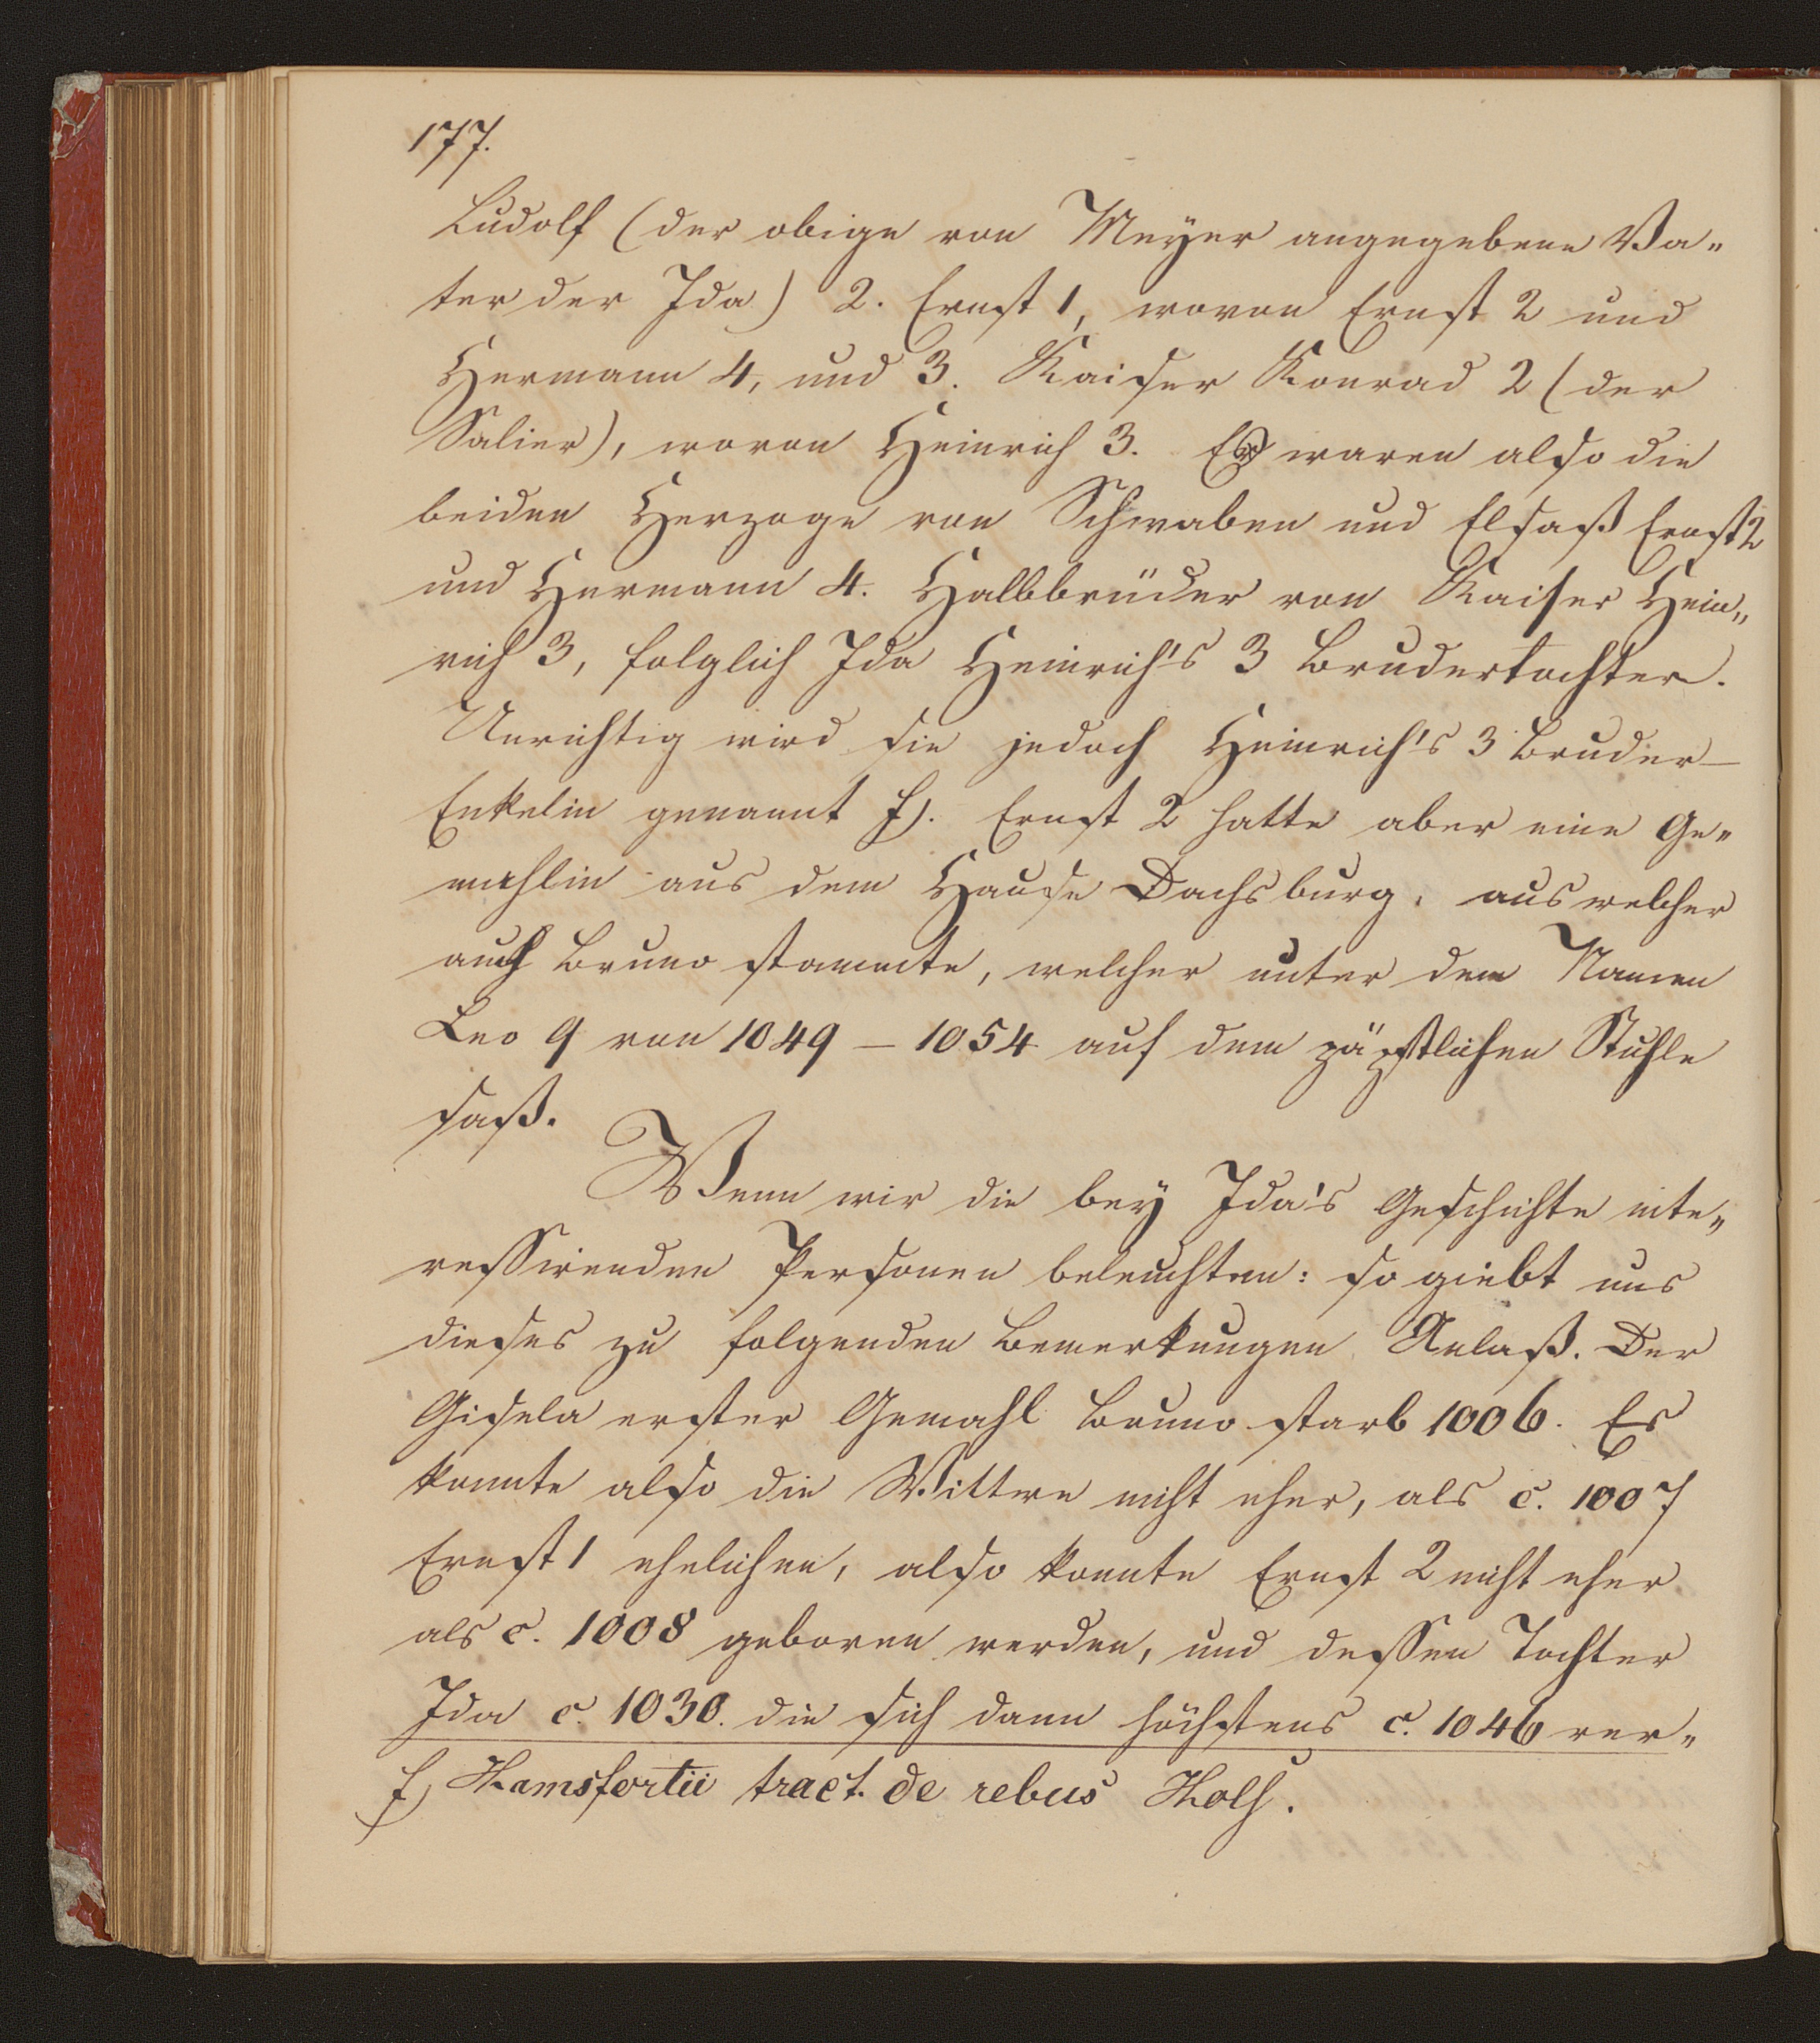 177.
Ludolf (der obige von Meyer angegebene Va„
ter der Ida) 2. Ernst 1, wovon Ernst 2 und
Hermann 4, und 3. Kaiser Konrad 2 (der
Salier), wovon Heinrich 3. Es waren also die
beiden Herzoge von Schwaben und Elsaß Ernst 2
und Hermann 4. Halbbrüder von Kaiser Hein„
rich 3, folglich Ida Heinrich's 3 Brudertochter.
Unrichtig wird sie jedoch Heinrich's 3 Bruder–
Enkelin genannt f). Ernst 2 hatte aber eine Ge„
mahlin aus dem Hause Dachsburg, aus welcher
auch Bruno stammte, welcher unter dem Namen
Leo 9 von 1049 – 1054 auf dem päpstlichen Stuhle
saß.
Wenn wir die bey Ida's Geschichte inte„
ressirenden Personen beleuchten: so giebt uns
dieses zu folgenden Bemerkungen Anlaß. Der
Gisela erster Gemahl Bruno starb 1006. Es
konnte also die Wittwe nicht eher, als c. 1007
Ernst 1 ehelichen, also konnte Ernst 2 nicht eher
als c. 1008 geboren werden, und dessen Tochter
Ida c. 1030. die sich dann höchstens c. 1046 ver„
f) Hamsfortii tract. de rebus Hols.